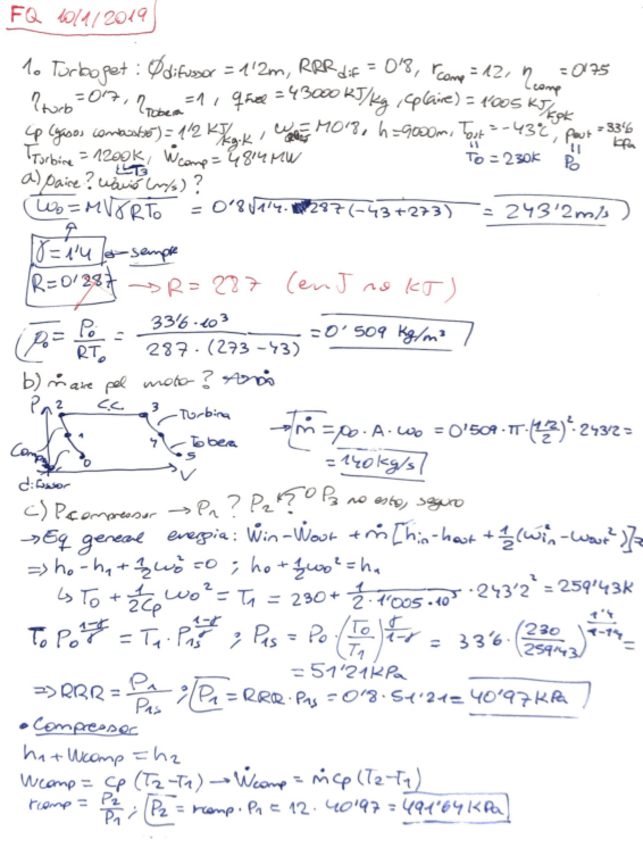 FQ 10/1/2019
1. Turbojet: Ødifussor = 1'2m, RRRdif = 0'8, rcomp = 12, ηcomp = 0'75
ηturb = 0'7, ηTobera = 1, qFuel = 43000 KJ/kg, cp(aire) = 1'005 KJ/kgK
cp (gasos combustió) = 1'2 KJ/kg·K, ω = M0'8, h = 9000m, Tout = -43ºC, pout = 33'6 kPa
TTurbina = 1200K, Ẇcomp = 48'4 MW
T3
T0 = 230K P0
a) ρaire? ωavió (m/s)?
ω0 = M√γRT0 = 0'8√1'4·287(-43+273) = 243'2m/s
γ = 1'4 ← sempre
R = 0'287 → R = 287 (en J no KJ)
ρ0 = P0/RT0 = 33'6·10³/287·(273-43) = 0'509 kg/m³
b) ṁ aire pel motor?
P 2 C.C. 3 Turbina
1 4 Tobera
Comp 0 5
difussor V
→ ṁ = ρ0·A·ω0 = 0'509·π·(1'2/2)²·243'2 =
= 140kg/s
c) Pcompressor → P1? P2? o P3 no estoy seguro
→ Eq general energia: Ẇin - Ẇout + ṁ[hin - hout + 1/2(ωin² - ωout²)] =
⇒ h0 - h1 + 1/2ω0² = 0 ; h0 + 1/2ω0² = h1
↳ T0 + 1/2cp ω0² = T1 = 230 + 1/2·1'005·10³ · 243'2² = 259'43K
T0 P0^(1-γ/γ) = T1·P1s^(1-γ/γ) ; P1s = P0·(T0/T1)^(γ/1-γ) = 33'6·(230/259'43)^(1'4/1-1'4) =
= 51'21kPa
⇒ RRR = P1/P1s ; P1 = RRR·P1s = 0'8·51'21 = 40'97KPa
• Compressor
h1 + Wcomp = h2
Wcomp = cp (T2-T1) → Ẇcomp = ṁcp (T2-T1)
rcomp = P2/P1 ; P2 = rcomp·P1 = 12·40'97 = 491'64KPa